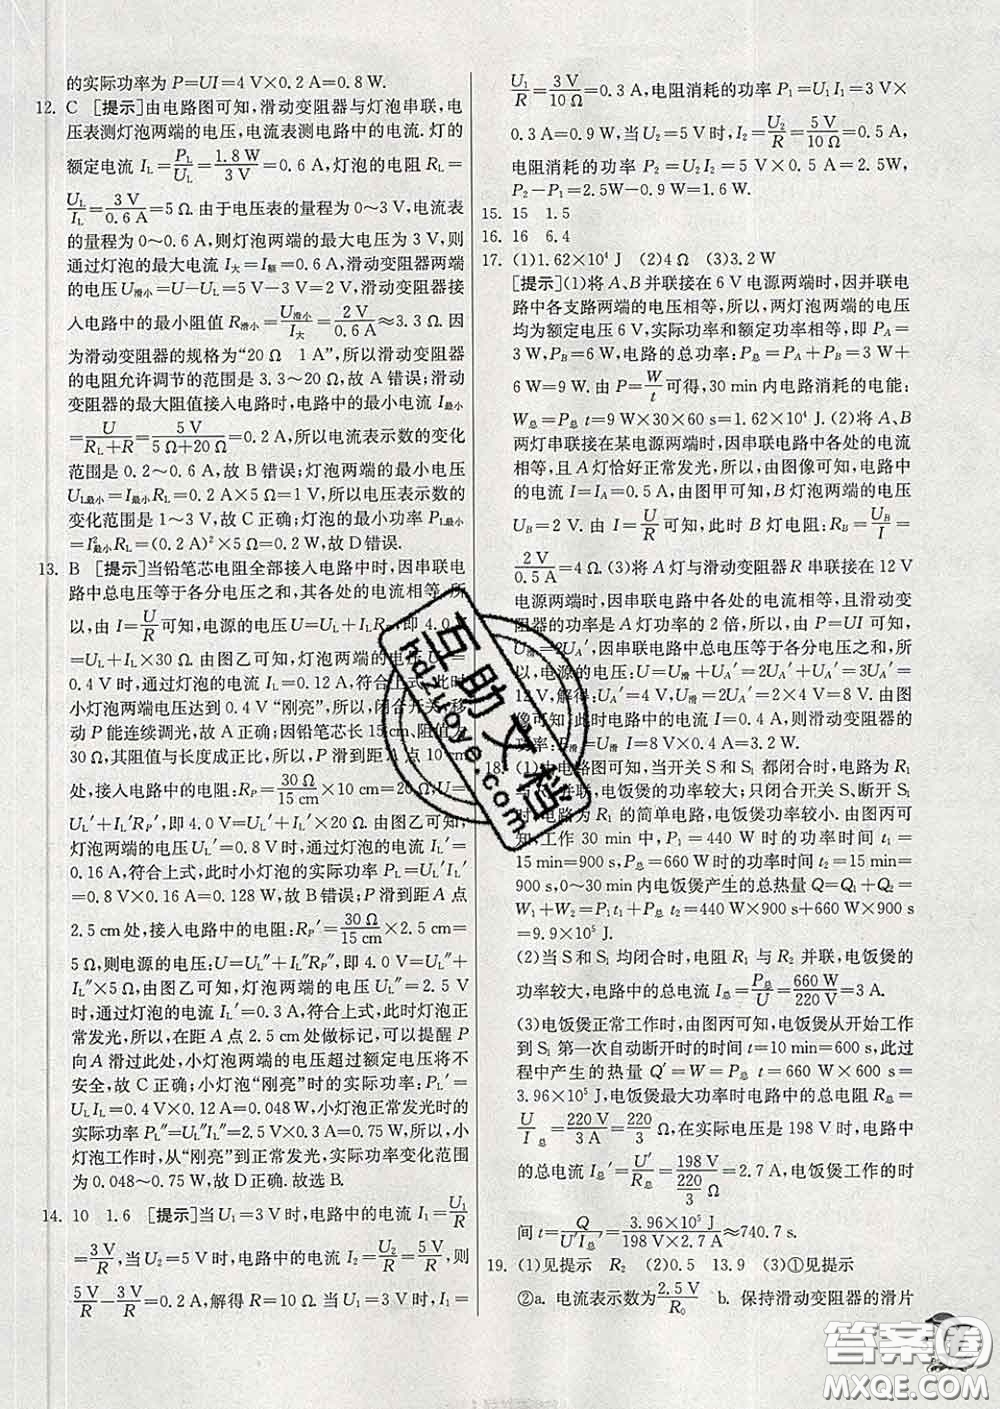 的实际功率为 P=UI=4 V×0.2 A=0.8 W.
12. C [提示]由电路图可知,滑动变阻器与灯泡串联,电
压表测灯泡两端的电压,电流表测电路中的电流. 灯的
额定电流 I_L=P_L/U_L=1.8 W/3 V=0.6 A,灯泡的电阻 R_L=
U_L/I_L=3 V/0.6 A=5 Ω. 由于电压表的量程为 0~3 V,电流表
的量程为 0~0.6 A,则灯泡两端的最大电压为 3 V,则
通过灯泡的最大电流 I大=I额=0.6 A,滑动变阻器两端
的电压 U滑小=U-U_L=5 V-3 V=2 V,滑动变阻器接
入电路中的最小阻值 R滑小=U滑小/I大=2 V/0.6 A≈3.3 Ω. 因
为滑动变阻器的规格为“20 Ω 1 A”,所以滑动变阻器
的电阻允许调节的范围是 3.3~20 Ω,故 A 错误;滑动
变阻器的最大阻值接入电路时,电路中的最小电流 I最小
=U/(R_L+R)=5 V/(5 Ω+20 Ω)=0.2 A,所以电流表示数的变化
范围是 0.2~0.6 A,故 B 错误;灯泡两端的最小电压
U_L最小=I最小R_L=0.2 A×5 Ω=1 V,所以电压表示数的
变化范围是 1~3 V,故 C 正确;灯泡的最小功率 P_L最小
=I²最小R_L=(0.2 A)²×5 Ω=0.2 W,故 D 错误.
13. B [提示]当铅笔芯电阻全部接入电路中时,因串联电
路中总电压等于各分电压之和,其各处电流相等,所
以,由 I=U/R可知,电源的电压 U=U_L+I_LR_P,即 4.0 V
=U_L+I_L×30 Ω. 由图乙可知,灯泡两端的电压 U_L=
0.4 V 时,通过灯泡的电流 I_L=0.12 A,符合上式,此时
小灯泡两端电压达到 0.4 V“刚亮”,所以,闭合开关,移
动 P 能连续调光,故 A 正确;因铅笔芯长 15 cm、阻值为
30 Ω,其阻值与长度成正比,所以,P 滑到距 A 点 10 cm
处,接入电路中的电阻:R_P′=30 Ω/15 cm×10 cm=20 Ω;U=
U_L′+I_L′R_P′,即 4.0 V=U_L′+I_L′×20 Ω. 由图乙可知,
灯泡两端的电压 U_L′=0.8 V 时,通过灯泡的电流 I_L′=
0.16 A,符合上式,此时小灯泡的实际功率 P_L′=U_L′I_L′
=0.8 V×0.16 A=0.128 W,故 B 错误;P 滑到距 A 点
2.5 cm 处,接入电路中的电阻:R_P″=30 Ω/15 cm×2.5 cm=
5 Ω,则电源的电压:U=U_L″+I_L″R_P″,即 4.0 V=U_L″+
I_L″×5 Ω. 由图乙可知,灯泡两端的电压 U_L″=2.5 V
时,通过灯泡的电流 I_L′=0.3 A,符合上式,此时灯泡正
常发光,所以,在距 A 点 2.5 cm 处做标记,可以提醒 P
向 A 滑过此处,小灯泡两端的电压超过额定电压将不
安全,故 C 正确;小灯泡“刚亮”时的实际功率:P_L=
U_LI_L=0.4 V×0.12 A=0.048 W,小灯泡正常发光时的
实际功率 P_L″=U_L″I_L″=2.5 V×0.3 A=0.75 W,所以,小
灯泡工作时,从“刚亮”到正常发光,实际功率变化范围
为 0.048~0.75 W,故 D 正确. 故选 B.
14. 10 1.6 [提示]当 U₁=3 V 时,电路中的电流 I₁=U₁/R
=3 V/R,当 U₂=5 V 时,电路中的电流 I₂=U₂/R=5 V/R,则
5 V/R-3 V/R=0.2 A,解得 R=10 Ω. 当 U₁=3 V 时,I₁=
U₁/R=3 V/10 Ω=0.3 A,电阻消耗的功率 P₁=U₁I₁=3 V×
0.3 A=0.9 W,当 U₂=5 V 时,I₂=U₂/R=5 V/10 Ω=0.5 A,
电阻消耗的功率 P₂=U₂I₂=5 V×0.5 A=2.5W,
P₂-P₁=2.5W-0.9 W=1.6 W.
15. 15 1.5
16. 16 6.4
17. (1)1.62×10⁴ J (2)4 Ω (3)3.2 W
[提示](1)将 A、B 并联接在 6 V 电源两端时,因并联电
路中各支路两端的电压相等,所以,两灯泡两端的电压
均为额定电压 6 V,实际功率和额定功率相等,即 P_A=
3 W,P_B=6 W,电路的总功率:P总=P_A+P_B=3 W+
6 W=9 W. 由 P=W/t可得,30 min 内电路消耗的电能:
W总=P总 t=9 W×30×60 s=1.62×10⁴ J. (2)将 A、B
两灯串联接在某电源两端时,因串联电路中各处的电流
相等,且 A 灯恰好正常发光,所以,由图像可知,电路中
的电流 I=I_A=0.5 A,由图甲可知,B 灯泡两端的电压
U_B=2 V. 由 I=U/R可知,此时 B 灯电阻:R_B=U_B/I=
2 V/0.5 A=4 Ω. (3)将 A 灯与滑动变阻器 R 串联接在 12 V
电源两端时,因串联电路中各处的电流相等,且滑动变
阻器的功率是 A 灯功率的 2 倍,所以,由 P=UI 可知,
U滑=2U_A′,因串联电路中总电压等于各分电压之和,所
以,电源的电压:U=U滑+U_A′=2U_A′+U_A′=3U_A′=
12 V,解得:U_A′=4 V,U滑=2U_A′=2×4 V=8 V. 由图
像可知:此时电路中的电流 I=0.4 A,则滑动变阻器的
功率:P滑=U滑 I=8 V×0.4 A=3.2 W.
18. (1)由电路图可知,当开关 S 和 S₁ 都闭合时,电路为 R₁
与 并联,电饭煲的功率较大;只闭合开关 S,断开 S₁
时,电路为 R₁ 的简单电路,电饭煲功率较小. 由图丙可
知,工作 30 min 中,P₁=440 W 时的功率时间 t₁=
15 min=900 s,P总=660 W时的功率时间 t₂=15 min=
900 s,0~30 min 内电饭煲产生的总热量 Q=Q₁+Q₂=
W₁+W₂=P₁t₁+P总t₂=440 W×900 s+660 W×900 s
=9.9×10⁵J.
(2)当 S 和 S₁ 均闭合时,电阻 R₁ 与 R₂ 并联,电饭煲的
功率较大,电路中的总电流 I总=P总/U=660 W/220 V=3 A.
(3)电饭煲正常工作时,由图丙可知,电饭煲从开始工作
到 S₁ 第一次自动断开时的时间 t=10 min=600 s,此过
程中产生的热量 Q′=W=P总 t=660 W×600 s=
3.96×10⁵ J,电饭煲最大功率时电路中的总电阻 R总=
U/I总=220 V/3 A=220/3 Ω,在实际电压是 198 V 时,电路中
的总电流 I总′=U′/R总=198 V/(220/3 Ω)=2.7 A,电饭煲工作的时
间 t=Q/(U′I总′)=3.96×10⁵ J/(198 V×2.7 A)≈740.7 s.
19. (1)见提示 R₂ (2)0.5 13.9 (3)①见提示
②a. 电流表示数为2.5 V/R₀ b. 保持滑动变阻器的滑片
互助文档
hdzuoye.com
答案圈
MXQE.COM